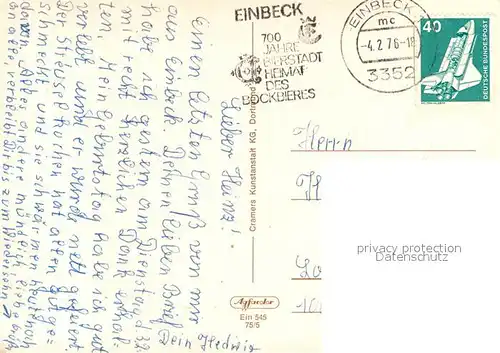 EINBECK
700
JAHRE
BIERSTADT
HEIMAT
DES
BOCKBIERES
EINBECK
mc
-4.2.76-18
3352
40
DEUTSCHE BUNDESPOST
Lieber Heinz!
Einen letzten Gruß von mir
aus Einbeck. Deinen lieben Brief
habe ich gestern am Dienstag d. 3.2.
mit recht herzlichem Dank erhal=
ten. Mein Geburtstag habe ich gut
verlebt und er wurde nett gefeiert.
Der Streuselkuchen hat allen gut ge=
schmeckt und sie schwärmen heute noch
davon. Alles andere mündlich. Liebe
an alle verbleibt Dir bis zum Wiedersehen
Dein Hedwig
Cramers Kunstanstalt KG, Dortmund
Agfacolor
Ein 545
75/5
Herrn
privacy protection
Datenschutz